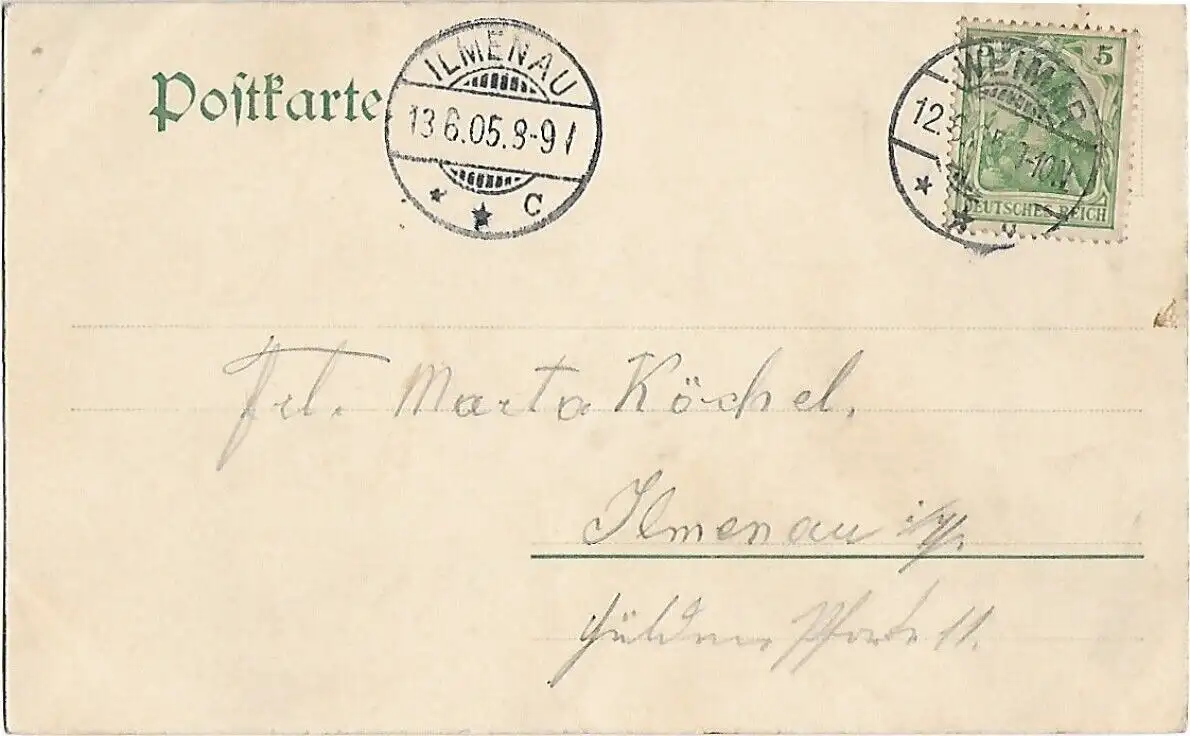 Postkarte
ILMENAU
13.6.05.8-9V
* * C
5
WEIMAR
12.
-10.
DEUTSCHES REICH
Frl. Marta Köchel.
Ilmenau i/
Güldene Pforte 11.